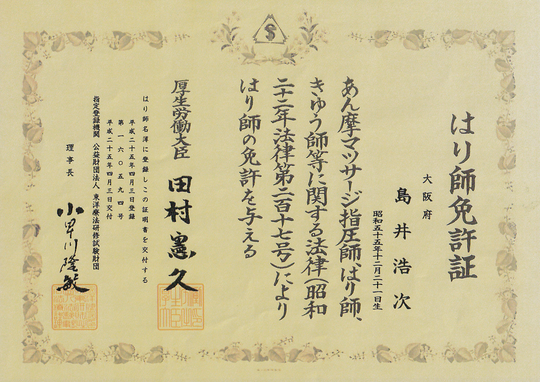 はり師免許証
大阪府
島井浩次
昭和五十五年十二月二十一日生
あん摩マッサージ指圧師、はり師、
きゅう師等に関する法律(昭和
二十二年法律第二百十七号)により
はり師の免許を与える
厚生労働大臣 田村憲久
はり師名簿に登録しこの証明書を交付する
平成二十五年四月三日登録
第一六〇五九四号
平成二十五年四月三日交付
指定登録機関 公益財団法人 東洋療法研修試験財団
理事長 小早川隆敏